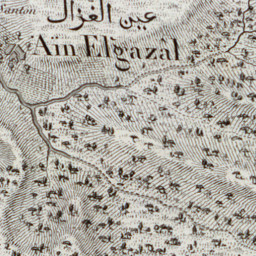 Santon
عين الغزال
Ain Elgazal